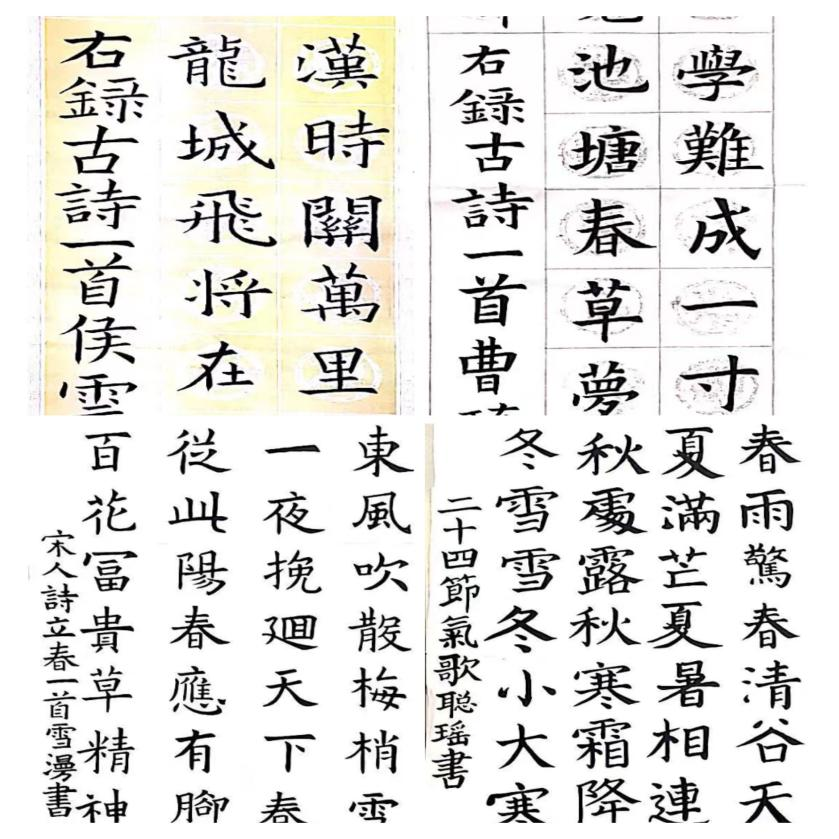 漢時關萬里
龍城飛将在
右録古詩一首侯雪
學難成一寸
池塘春草夢
右録古詩一首曹
東風吹散梅梢雪
一夜挽廻天下春
從此陽春應有腳
百花冨貴草精神
宋人詩立春一首雪漫書
春雨驚春清谷天
夏滿芒夏暑相連
秋處露秋寒霜降
冬雪雪冬小大寒
二十四節氣歌聪瑶書